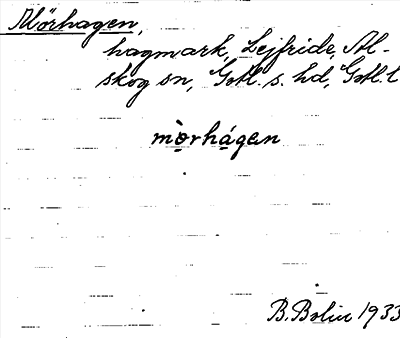 Mörhagen,
hagmark, Lejfride, Al-
skog sn, Gotl. s. hd, Gotl. l
mò̱rhá̱gen
B. Bolin 1933